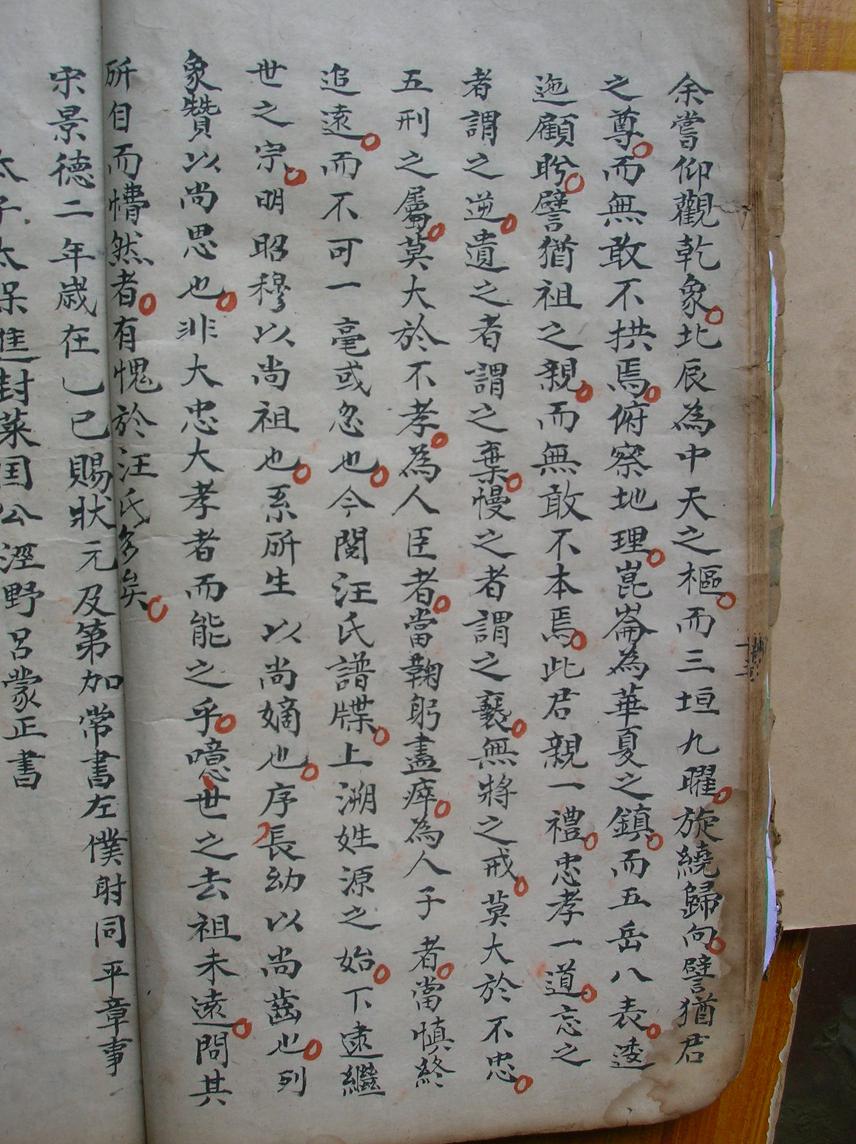 余嘗仰觀乾象北辰為中天之樞而三垣九曜旋繞歸向譬猶君
之尊而無敢不拱焉俯察地理崑崙為華夏之鎮而五岳八表逶
迤顧盻譬猶祖之親而無敢不本焉此君親一禮忠孝一道忘之
者謂之逆遺之者謂之棄慢之者謂之褻無將之戒莫大於不忠
五刑之屬莫大於不孝為人臣者當鞠躬盡瘁為人子者當慎終
追遠而不可一毫或忽也今閱汪氏譜牒上溯姓源之始下逮繼
世之宗明昭穆以尚祖也系所生以尚嫡也序長幼以尚齒也列
象贊以尚思也非大忠大孝者而能之乎噫世之去祖未遠問其
所自而懵然者有愧於汪氏多矣
宋景德二年歲在乙巳賜狀元及第加常書左僕射同平章事
太子太保進封萊国公涇野呂蒙正書